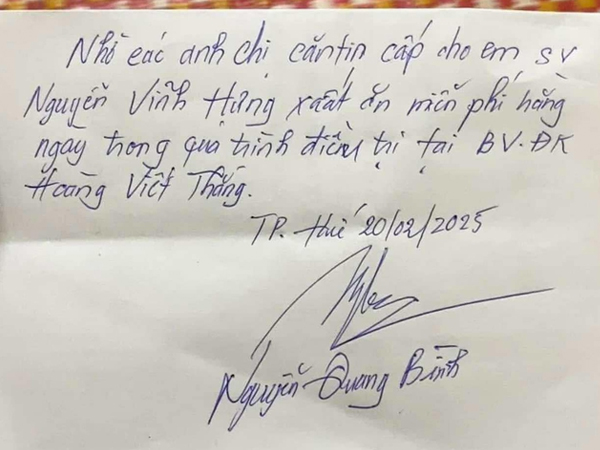 Nhờ các anh chị căntin cấp cho em SV
Nguyễn Vĩnh Hưng xuất ăn miễn phí hằng
ngày trong quá trình điều trị tại BV-ĐK
Hoàng Viết Thắng.
TP. Huế 20/02/2025
Nguyễn Quang Bình